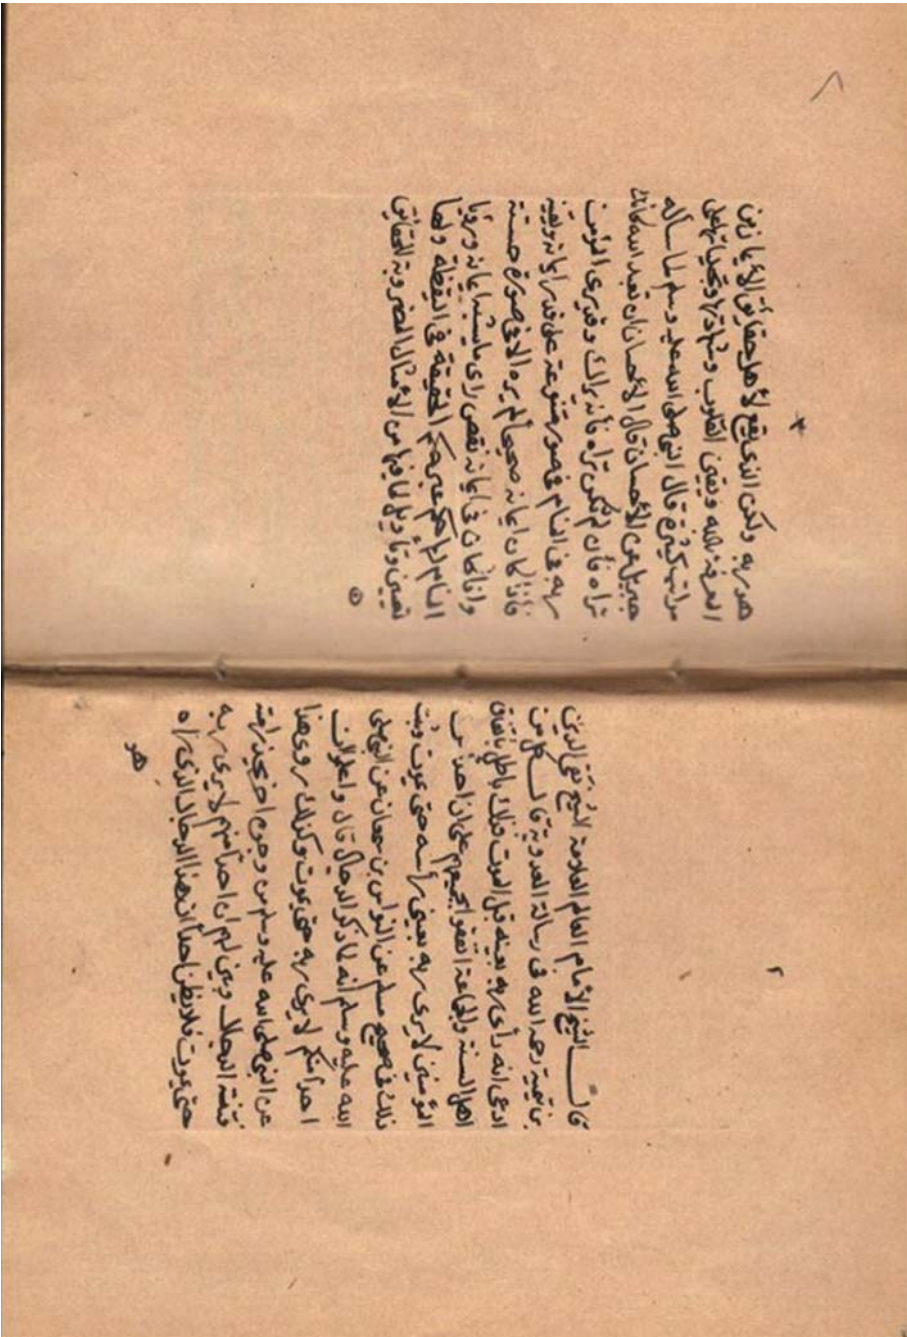 ٢
قالــــ الشيخ الأمام العالم العلامة الشيخ تقى الدين
بن تيمية رحمه الله فى رسالة العدوية قالــ كل من
ادعى انه رأى ربه بعينه قبل الموت فذلك باطل باتفاق
اهل السنة والجماعة اتفقو اجميعهم على ان احدا من
المؤمنين لا يرى ربه بعينى رأسه حتى يموت وثبت
ذلك فى صحيح مسلم عن النواس بن سمعان عن النبى صلى
الله عليه وسلم أنه لما ذكر الدجال قال واعلموا ان
احدا منكم لا يرى ربه حتى يموت وكذلك روى هذا
عن النبى صلى الله عليه وسلم من وجوه اخر يحذر امته
فتنة الدجال وبين لهم ان احدا منهم لا يرى ربه
حتى يموت فلا يظن احدا أن هذا الدجال الذى راه
هو
٣
هو ربه ولكن الذى يقع لأهل حقائق الأيمان من
المعرفة بالله ويقين القلوب ومشاهدتها وتجلياتها على
مراتب كثيرة قال النبى صلى الله عليه وسلم لما سأله
جبريل عن الأحسان قال الأحسان ان تعبد الله كانك
تراه فأن لم تكن تراه فأنه يراك وقد يرى المؤمن
ربه فى المنام فى صور متنوعة على قدر ايمانه ويقينه
فاذا كان ايمانه صحيحا لم يره الا فى صورة حسنة
واذا كان فى ايمانه نقص راى ما يشبه ايمانه ورؤيا
المنام لها حكم غير حكم الحقيقة فى اليقظة ولها
تعبير وتأويل لما فيها من الأمثال المضروبة للحقائق